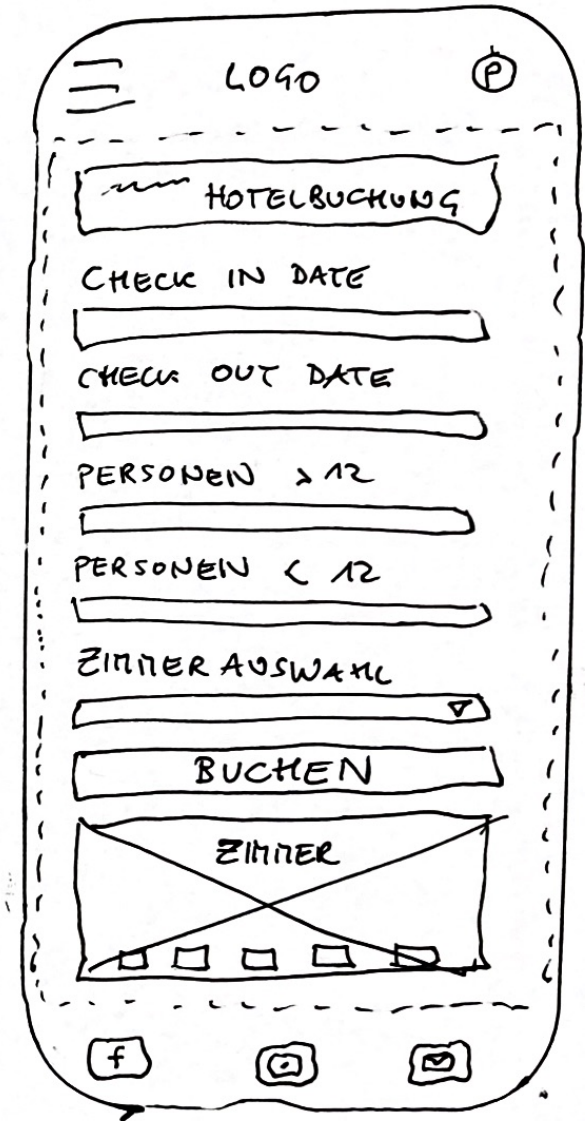 LOGO P
HOTELBUCHUNG
CHECK IN DATE
CHECK OUT DATE
PERSONEN > 12
PERSONEN < 12
ZIMMER AUSWAHL
BUCHEN
ZIMMER
f